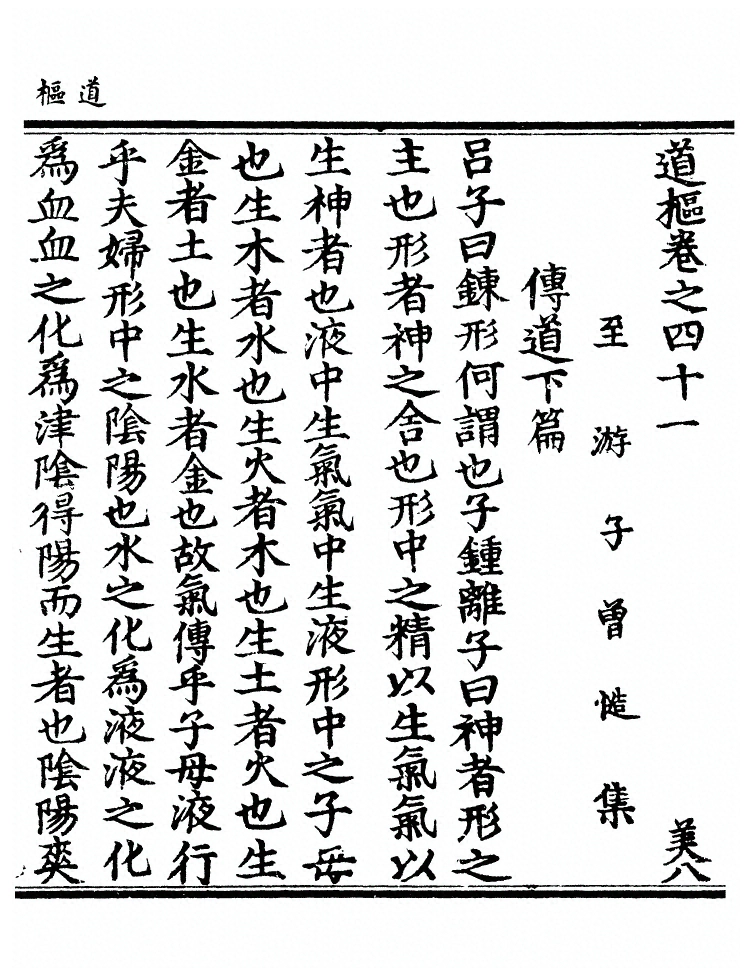 道樞
道樞卷之四十一　美八
至游子曾慥集
傳道下篇
呂子曰鍊形何謂也子鍾離子曰神者形之
主也形者神之舍也形中之精以生氣氣以
生神者也液中生氣氣中生液形中之子母
也生木者水也生火者木也生土者火也生
金者土也生水者金也故氣傳乎子母液行
乎夫婦形中之陰陽也水之化爲液液之化
爲血血之化爲津陰得陽而生者也陰陽奭